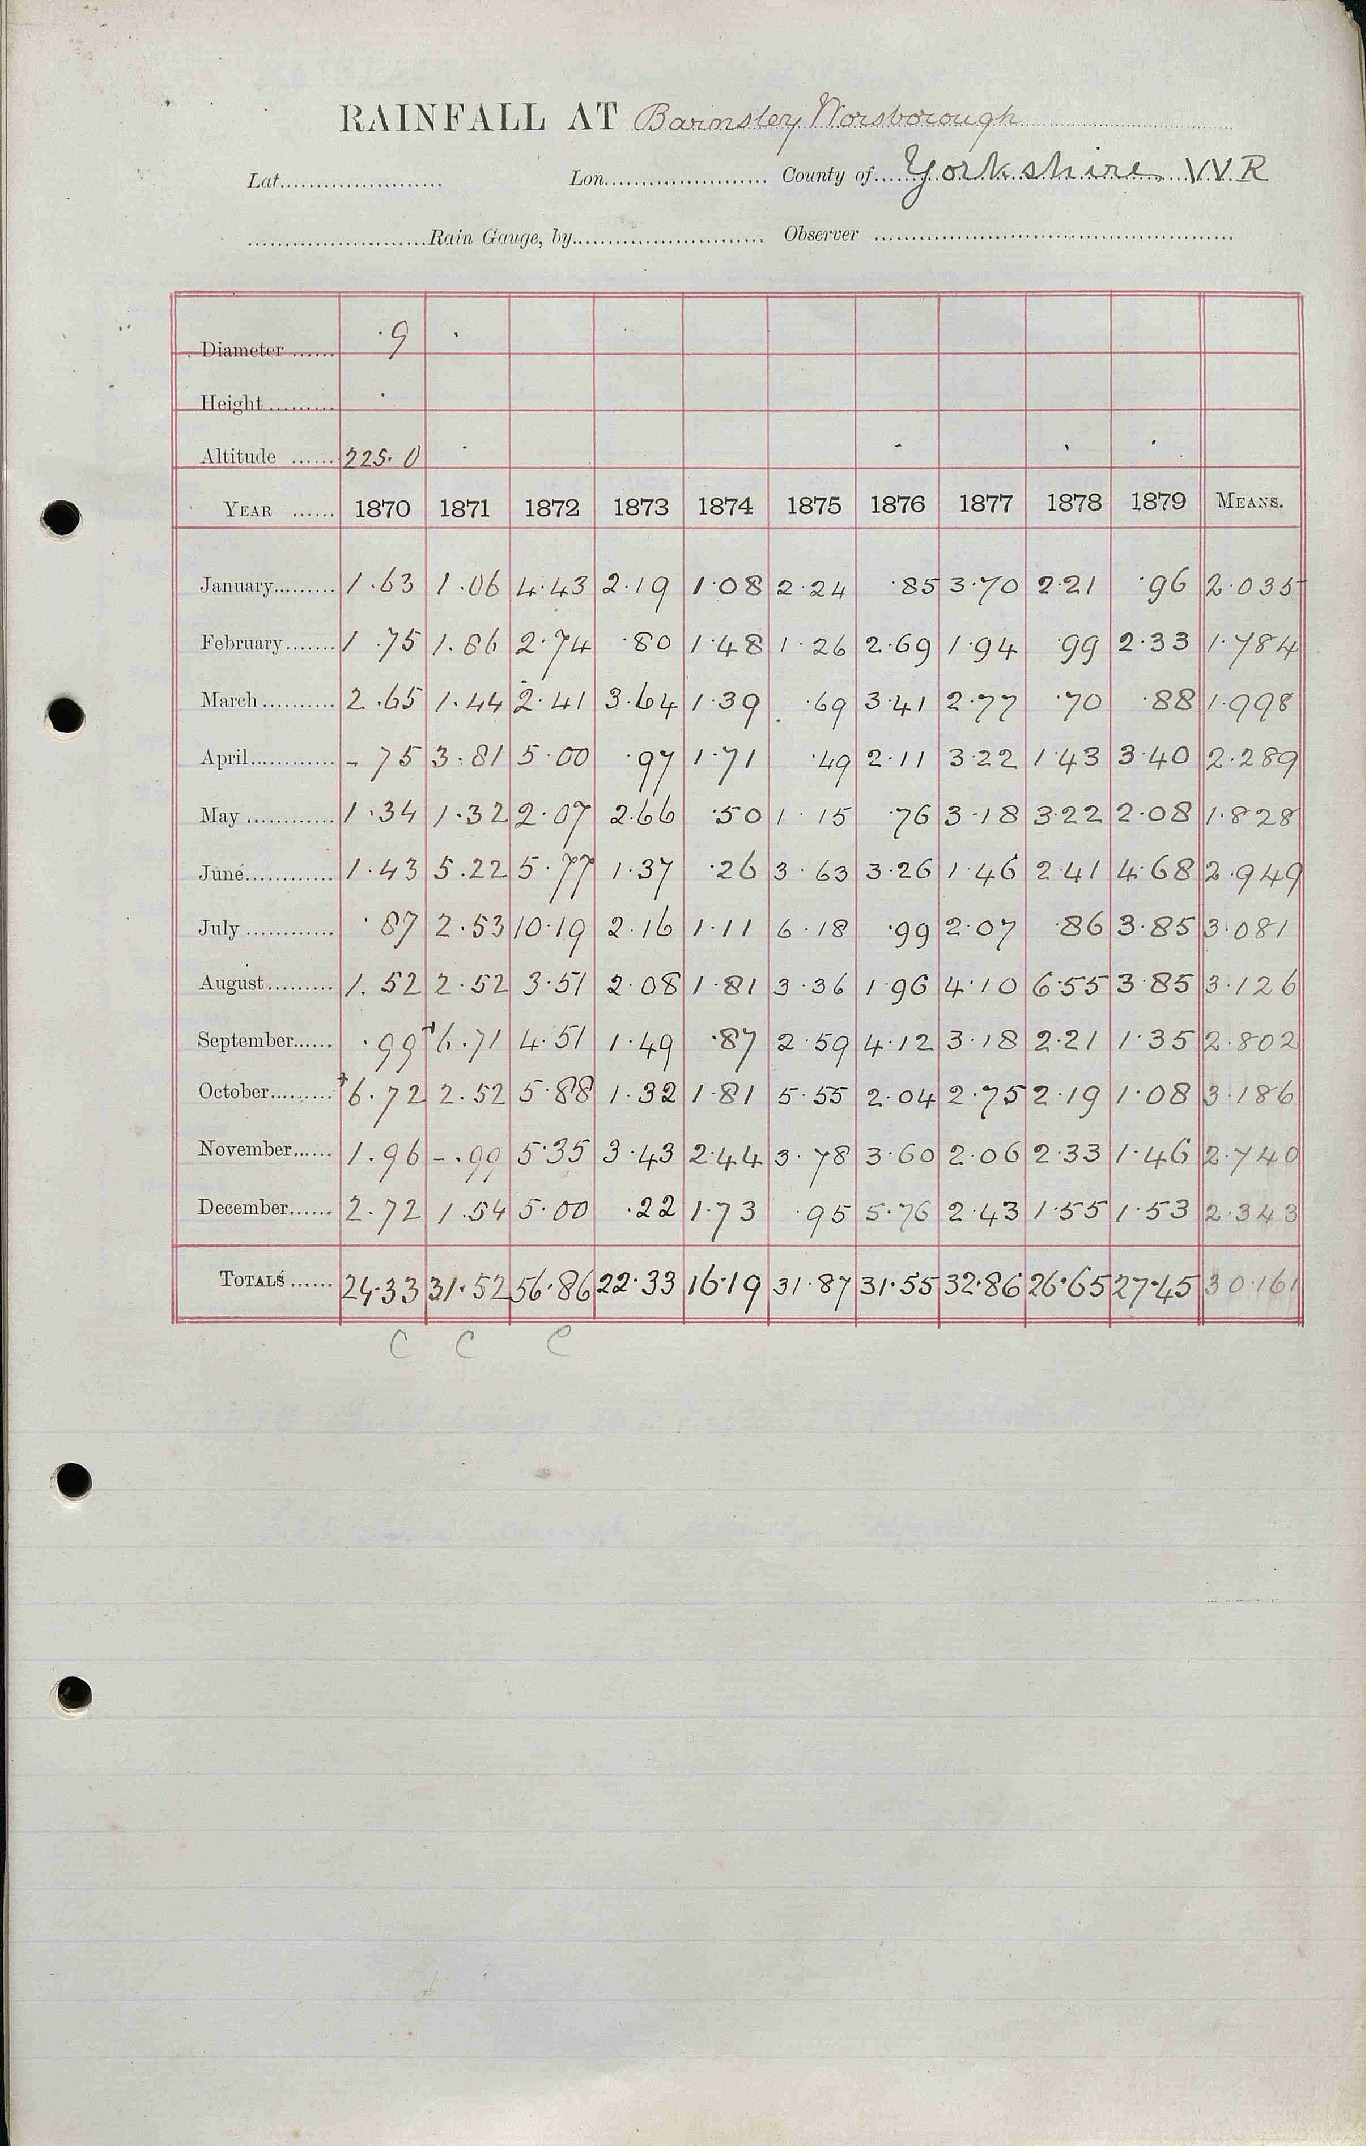 RAINFALL AT Barnsley, Worsborough
Lat. Lon. County of Yorkshire. W R
Rain Gauge, by Observer
Diameter 9
Height
Altitude 225.0
YEAR 1870 1871 1872 1873 1874 1875 1876 1877 1878 1879 MEANS.
January 1.63 1.06 4.43 2.19 1.08 2.24 .85 3.70 2.21 .96 2.035
February 1.75 1.86 2.74 .80 1.48 1.26 2.69 1.94 .99 2.33 1.784
March 2.65 1.44 2.41 3.64 1.39 .69 3.41 2.77 .70 .88 1.998
April - 75 3.81 5.00 .97 1.71 .49 2.11 3.22 1.43 3.40 2.289
May 1.34 1.32 2.07 2.66 .50 1.15 .76 3.18 3.22 2.08 1.828
June 1.43 5.22 5.77 1.37 .26 3.63 3.26 1.46 2.41 4.68 2.949
July .87 2.53 10.19 2.16 1.11 6.18 .99 2.07 .86 3.85 3.081
August 1.52 2.52 3.51 2.08 1.81 3.36 1.96 4.10 6.55 3.85 3.126
September .99 +6.71 4.51 1.49 .87 2.59 4.12 3.18 2.21 1.35 2.802
October +6.72 2.52 5.88 1.32 1.81 5.55 2.04 2.75 2.19 1.08 3.186
November 1.96 -.99 5.35 3.43 2.44 3.78 3.60 2.06 2.33 1.46 2.740
December 2.72 1.54 5.00 .22 1.73 .95 5.76 2.43 1.55 1.53 2.343
TOTALS 24.33 31.52 56.86 22.33 16.19 31.87 31.55 32.86 26.65 27.45 30.161
C C C